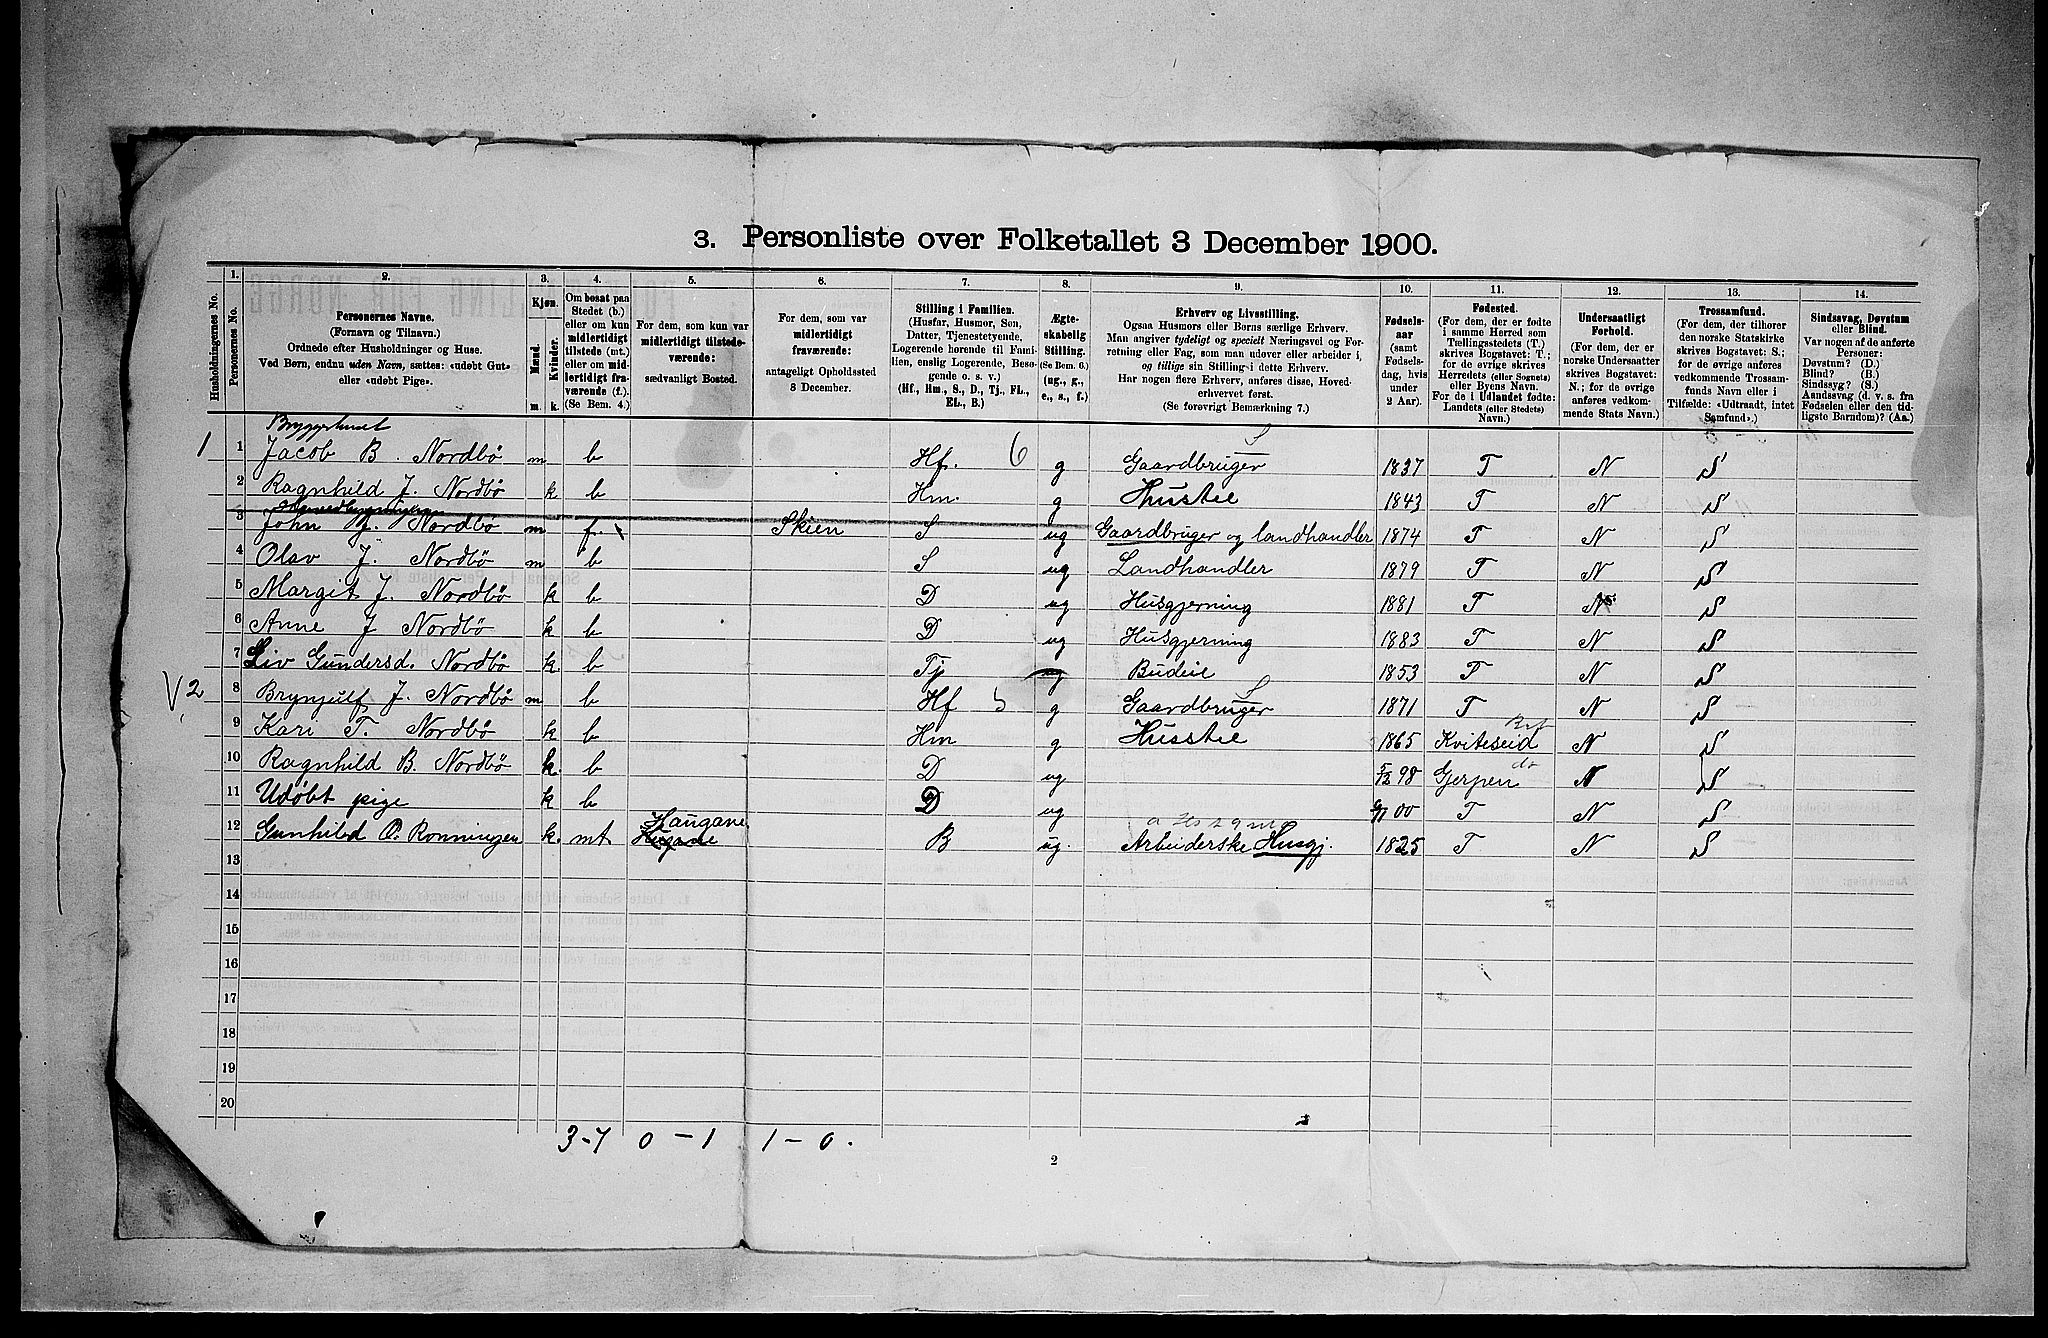 3. Personliste over Folketallet 3 December 1900.
1. 2. 3. 4. 5. 6. 7. 8. 9. 10. 11. 12. 13. 14.
Husholdningernes No.
Personernes No.
Personernes Navne.
(Fornavn og Tilnavn.)
Ordnede efter Husholdninger og Huse.
Ved Børn, endnu uden Navn, sættes: «udøbt Gut»
eller «udøbt Pige».
Kjøn.
Mænd. Kvinder.
m. k.
Om bosat paa
Stedet (b.)
eller om kun
midlertidigt
tilstede (mt.)
eller om mid-
lertidigt fra-
værende (f.).
(Se Bem. 4.)
For dem, som kun var
midlertidigt tilstede-
værende:
sædvanligt Bosted.
For dem, som var
midlertidigt
fraværende:
antageligt Opholdssted
3 December.
Stilling i Familien.
(Husfar, Husmor, Søn,
Datter, Tjenestetyende,
Logerende hørende til Fami-
lien, enslig Logerende, Besø-
gende o. s. v.)
(Hf., Hm., S., D., Tj., FL.,
EL., B.)
Ægte-
skabelig
Stilling.
(Se Bem. 6.)
(ug., g.,
e., s., f.)
Erhverv og Livsstilling.
Ogsaa Husmors eller Børns særlige Erhverv.
Man angiver tydeligt og specielt Næringsvei og For-
retning eller Fag, som man udøver eller arbeider i,
og tillige sin Stilling i dette Erhverv.
Har nogen flere Erhverv, anføres disse, Hoved-
erhvervet først.
(Se forøvrigt Bemærkning 7.)
Fødsels-
aar
(samt
Fødsels-
dag, hvis
under
2 Aar).
Fødested.
(For dem, der er fødte
i samme Herred som
Tællingsstedets (T.)
skrives Bogstavet: T.;
for de øvrige skrives
Herredets (eller Sognets)
eller Byens Navn.
For de i Udlandet fødte:
Landets (eller Stedets)
Navn.)
Undersaatligt
Forhold.
(For dem, der er
norske Undersaatter
skrives Bogstavet:
N.; for de øvrige
anføres vedkom-
mende Stats Navn.)
Trossamfund.
(For dem, der tilhører
den norske Statskirke
skrives Bogstavet: S.;
for de øvrige anføres
vedkommende Trossam-
funds Navn eller i
Tilfælde: «Udtraadt, intet
Samfund».)
Sindssvag, Døvstum
eller Blind.
Var nogen af de anførte
Personer:
Døvstum? (D.)
Blind? (B.)
Sindssyg? (S.)
Aandssvag (d. v. s. fra
Fødselen eller den tid-
ligste Barndom)? (Aa.)
Bryggerhuset
1 1 Jacob B. Nordbö m b Hf. 6 g Gaardbruger S 1837 T N S
2 Ragnhild J. Nordbö k b Hm. g Hustee 1843 T N S
3 John J. Nordbö m f. Skien S ug Gaardbruger og landhandler 1874 T N S
4 Olav J. Nordbö m b S ug Landhandler 1879 T N S
5 Margit J. Nordbö k b D ug Husgjerning 1881 T N S
6 Anne J Nordbö k b D ug Husgjerning 1883 T N S
7 Liv Gundersd. Nordbö k. b Tj ug Budeie 1853 T N S
V 2 8 Brynjulf J. Nordbö m b Hf 5 g Gaardbruger S 1871 T N S
9 Kari T. Nordbö k b Hm g Husstee 1865 Kviteseid N S
10 Ragnhild B. Nordbö k. b D ug 5/12 98 Gjerpen do N S
11 Udöbt pige k b D ug 00 T N S
Haugane
12 Gunhild O. Rönningen k. mt Hugane B ug. Arbeiderske Husgj. 1825 T N S
13
14
15
16
17
18
19
20
3-7 0-1 1-0.
2